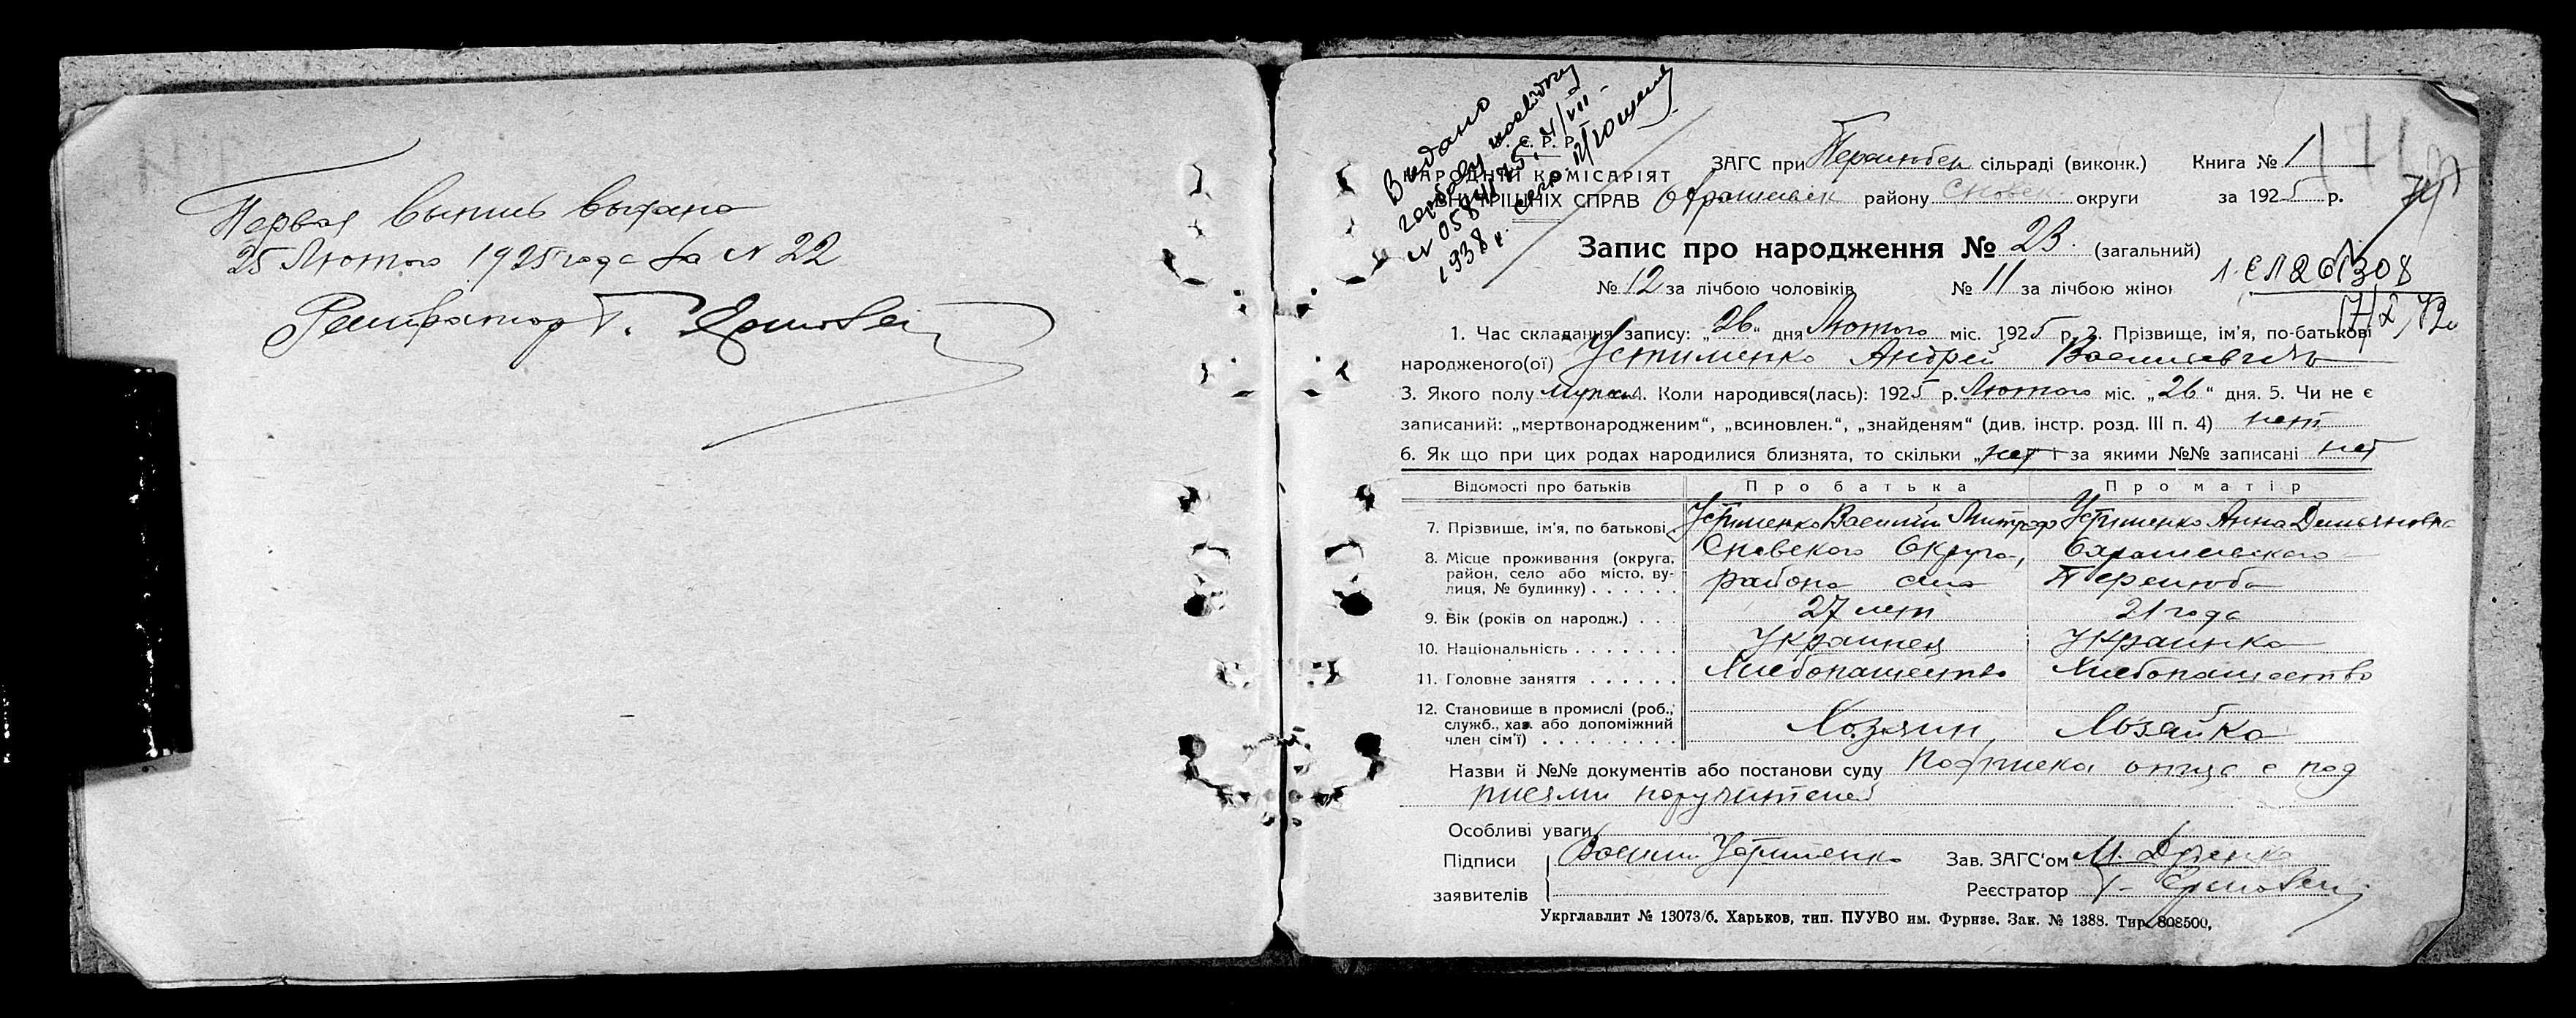 Первая выпись выдана
25 Лютого 1925 года за N 22
Регистратор Г.
Видано
N
1938 р.
У. С. Р. Р.
НАРОДНІЙ КОМІСАРІЯТ
ВНУТРІШНІХ СПРАВ
ЗАГС при сільраді (виконк.) Книга № 1
району Сновск округи за 1925 р.
Запис про народження № 23. (загальний)
№ 12 за лічбою чоловіків № 11 за лічбою жінок
1. Час складання запису: „26“ дня Лютого міс. 1925 р. 2. Прізвище, ім'я, по-батькові
народженого(ої) Устименко Андрей Васильевичъ
3. Якого полу мужск 4. Коли народився(лась): 1925 р. Лютого міс. „26“ дня. 5. Чи не є
записаний: „мертвонародженим“, „всиновлен.“, „знайденям“ (див. інстр. розд. III п. 4) нет
6. Як що при цих родах народилися близнята, то скільки „нет“ за якими №№ записані нет
Відомості про батьків Про батька Про матір
7. Прізвище, ім'я, по батькові Устименко Василий Митроф Устименко Анна Демьяновна
8. Місце проживання (округа, Сновского Округа,
район, село або місто, ву- района села
лиця, № будинку) . . . . . .
9. Вік (років од народж.) . . . 27 лет 21 года
10. Національність . . . . . . . Украинец Украинка
11. Головне заняття . . . . . . Хлебопашество Хлебопашество
12. Становище в промислі (роб.,
служб., хаз. або допоміжний Хозяин Хозяйка
член сім'ї) . . . . . . . . .
Назви й №№ документів або постанови суду Подписка отца с под
писями поручителей
Особливі уваги
Підписи Василий Устименко Зав. ЗАГС'ом
заявителів Реєстратор Г.
Укрглавлит № 13073/б. Харьков, тип. ПУУВО им. Фрунзе. Зак. № 1388. Тир. 808500,